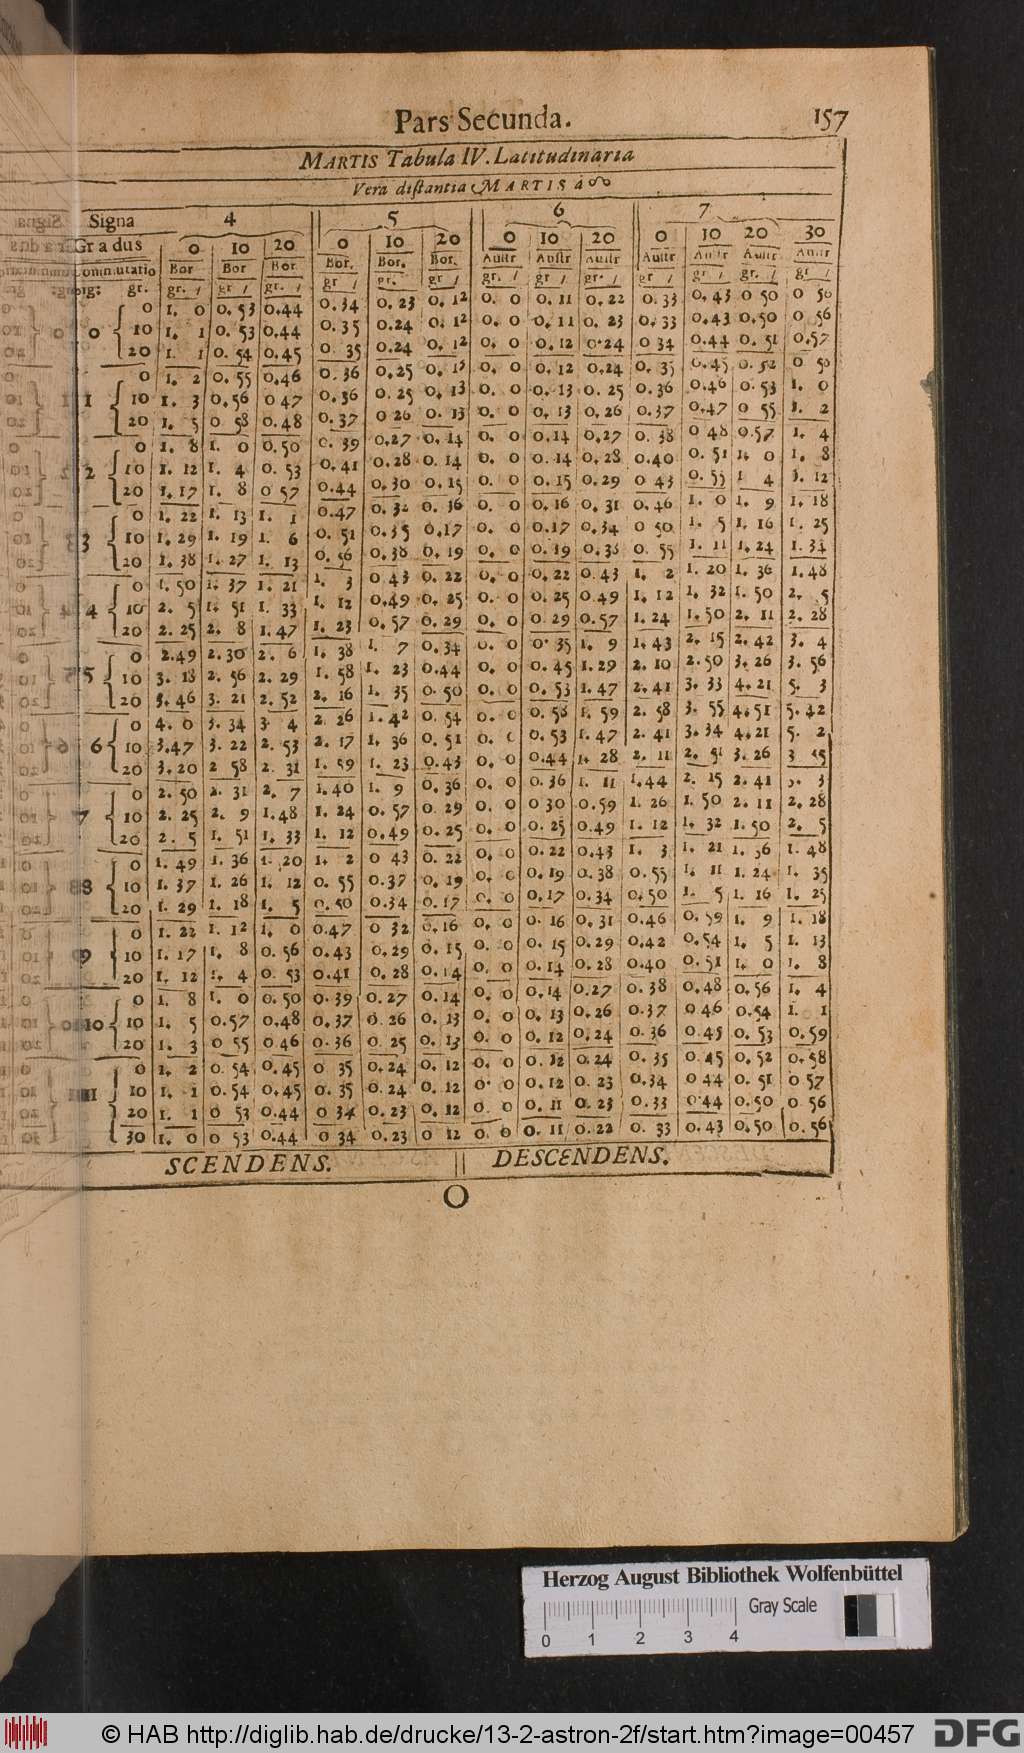 Pars Secunda. 157
MARTIS Tabula IV. Latitudinaria
Vera distantia MARTIS à ☊
Signa 4 5 6 7
Gradus 0 10 20 0 10 20 0 10 20 0 10 20 30
Bor Bor Bor. Bor. Bor. Bor. Austr Austr Austr Austr Austr Austr Austr
gr. gr. / gr / gr. / gr / gr. gr / gr. / gr / gr. / gr / gr / gr. / gr /
0 0 1. 0 0. 53 0.44 0.34 0. 23 0. 12 0. 0 0. 11 0. 22 0. 33 0. 43 0 50 0 56
10 1. 1 0. 53 0.44 0. 35 0.24 0. 12 0. 0 0. 11 0. 23 0. 33 0.43 0.50 0 56
20 1. 1 0. 54 0.45 0. 35 0.24 0. 12 0. 0 0. 12 0.24 0 34 0.44 0. 51 0.57
1 0 1. 2 0. 55 0.46 0. 36 0.25 0. 13 0. 0 0. 12 0.24 0. 35 0.45 0. 52 0 58
10 1. 3 0.56 0 47 0.36 0. 25 0. 13 0. 0 0. 13 0. 25 0.36 0.46 0. 53 1. 0
20 1. 5 0 58 0.48 0. 37 0 26 0. 13 0. 0 0. 13 0. 26 0.37 0.47 0 55 1. 2
2 0 1. 8 1. 0 0.50 0. 39 0.27 0. 14 0. 0 0.14 0.27 0. 38 0 48 0.57 1. 4
10 1. 12 1. 4 0. 53 0.41 0.28 0. 14 0. 0 0. 14 0.28 0.40 0. 51 1. 0 1. 8
20 1. 17 1. 8 0 57 0.44 0.30 0. 15 0. 0 0. 15 0.29 0 43 0. 55 1 4 1. 12
3 0 1. 22 1. 13 1. 1 0.47 0. 32 0. 16 0. 0 0. 16 0. 31 0.46 1. 0 1. 9 1. 18
10 1. 29 1. 19 1. 6 0. 51 0.35 0.17 0. 0 0.17 0.34 0 50 1. 5 1. 16 1. 25
20 1. 38 1. 27 1. 13 0. 56 0.38 0. 19 0. 0 0. 19 0. 38 0. 55 1. 11 1.24 1. 34
4 0 1. 50 1. 37 1. 21 1. 3 0 43 0. 22 0. 0 0. 22 0. 43 1. 2 1. 20 1. 36 1.48
10 2. 5 1. 51 1. 33 1. 12 0.49 0. 25 0. 0 0. 25 0.49 1. 12 1. 32 1. 50 2. 5
20 2. 25 2. 8 1.47 1. 23 0. 57 0. 29 0. 0 0. 29 0.57 1. 24 1. 50 2. 11 2. 28
5 0 2.49 2. 30 2. 6 1. 38 1. 7 0.34 0. 0 0. 35 1. 9 1. 43 2. 15 2. 42 3. 4
10 3. 18 2. 56 2. 29 1. 58 1. 23 0.44 0. 0 0. 45 1. 29 2. 10 2.50 3. 26 3. 56
20 3. 46 3. 21 2. 52 2. 16 1. 35 0. 50 0. 0 0. 53 1. 47 2. 41 3. 33 4. 21 5. 3
6 0 4. 0 3. 34 3. 4 2 26 1. 42 0. 54 0. 0 0. 58 1. 59 2. 58 3. 55 4. 51 5. 42
10 3.47 3. 22 2. 53 2. 17 1. 36 0. 51 0. 0 0. 53 1. 47 2. 41 3. 34 4. 21 5. 2
20 3. 20 2 58 2. 31 1. 59 1. 23 0.43 0. 0 0.44 1. 28 2. 11 2. 51 3. 26 3 55
7 0 2. 50 2. 31 2. 7 1. 40 1. 9 0. 36 0. 0 0. 36 1. 11 1.44 2. 15 2. 41 3. 3
10 2. 25 2. 9 1.48 1. 24 0. 57 0 29 0. 0 0 30 0.59 1. 26 1. 50 2. 11 2. 28
20 2. 5 1. 51 1. 33 1. 12 0.49 0. 25 0. 0 0. 25 0.49 1. 12 1. 32 1. 50 2. 5
8 0 1. 49 1. 36 1. 20 1. 2 0 43 0. 22 0. 0 0. 22 0.43 1. 3 1. 21 1. 36 1. 48
10 1. 37 1. 26 1. 12 0. 55 0.37 0. 19 0. 0 0. 19 0. 38 0. 55 1. 11 1. 24 1. 35
20 1. 29 1. 18 1. 5 0. 50 0.34 0. 17 0. 0 0. 17 0.34 0. 50 1. 5 1. 16 1. 25
9 0 1. 22 1. 12 1. 0 0.47 0 32 0. 16 0. 0 0. 16 0. 31 0.46 0. 59 1. 9 1. 18
10 1. 17 1. 8 0. 56 0.43 0. 29 0. 15 0. 0 0. 15 0.29 0.42 0.54 1. 5 1. 13
20 1. 12 1. 4 0. 53 0.41 0. 28 0.14 0. 0 0. 14 0. 28 0.40 0. 51 1. 0 1. 8
10 0 1. 8 1. 0 0. 50 0. 39 0. 27 0. 14 0. 0 0.14 0.27 0. 38 0.48 0. 56 1. 4
10 1. 5 0.57 0.48 0. 37 0. 26 0. 13 0. 0 0. 13 0. 26 0.37 0 46 0.54 1. 1
20 1. 3 0 55 0.46 0. 36 0. 25 0. 13 0. 0 0. 12 0.24 0. 36 0.45 0. 53 0.59
11 0 1. 2 0. 54 0.45 0 35 0.24 0. 12 0. 0 0. 12 0.24 0. 35 0.45 0. 52 0.58
10 1. 1 0. 54 0.45 0. 35 0. 24 0. 12 0. 0 0. 12 0. 23 0.34 0 44 0. 51 0 57
20 1. 1 0 53 0.44 0 34 0. 23 0. 12 0. 0 0. 11 0. 23 0. 33 0.44 0. 50 0 56
30 1. 0 0 53 0.44 0 34 0.23 0 12 0. 0 0. 11 0. 22 0. 33 0. 43 0. 50 0. 56
SCENDENS. || DESCENDENS.
O
Herzog August Bibliothek Wolfenbüttel
Gray Scale
0 1 2 3 4
© HAB http://diglib.hab.de/drucke/13-2-astron-2f/start.htm?image=00457 DFG